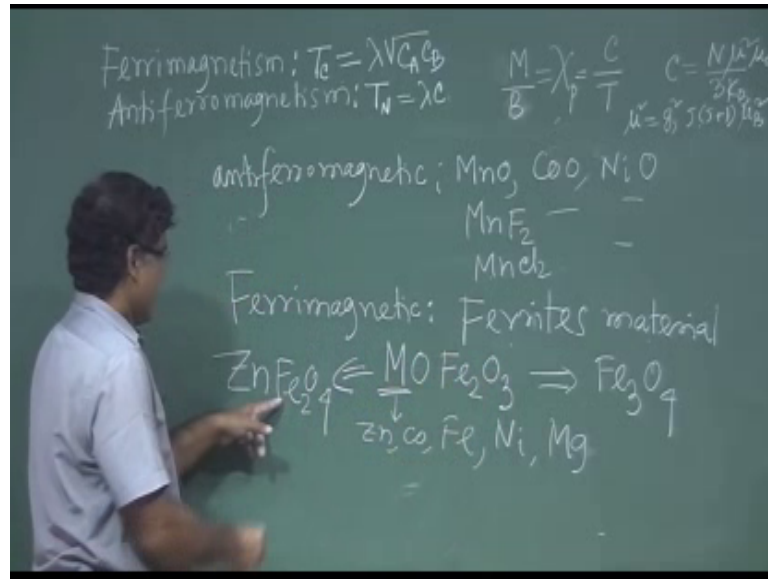 Ferrimagnetism: T_C = λ√C_A C_B
Antiferromagnetism: T_N = λC
M/B = χ_p = C/T
C = Nμ²μ₀/3K_B
μ² = g² J(J+1) μ_B²
antiferromagnetic: MnO, CoO, NiO
MnF₂
MnCl₂
Ferrimagnetic: Ferrites material
ZnFe₂O₄ ⇐ MO Fe₂O₃ ⇒ Fe₃O₄
Zn, Co, Fe, Ni, Mg